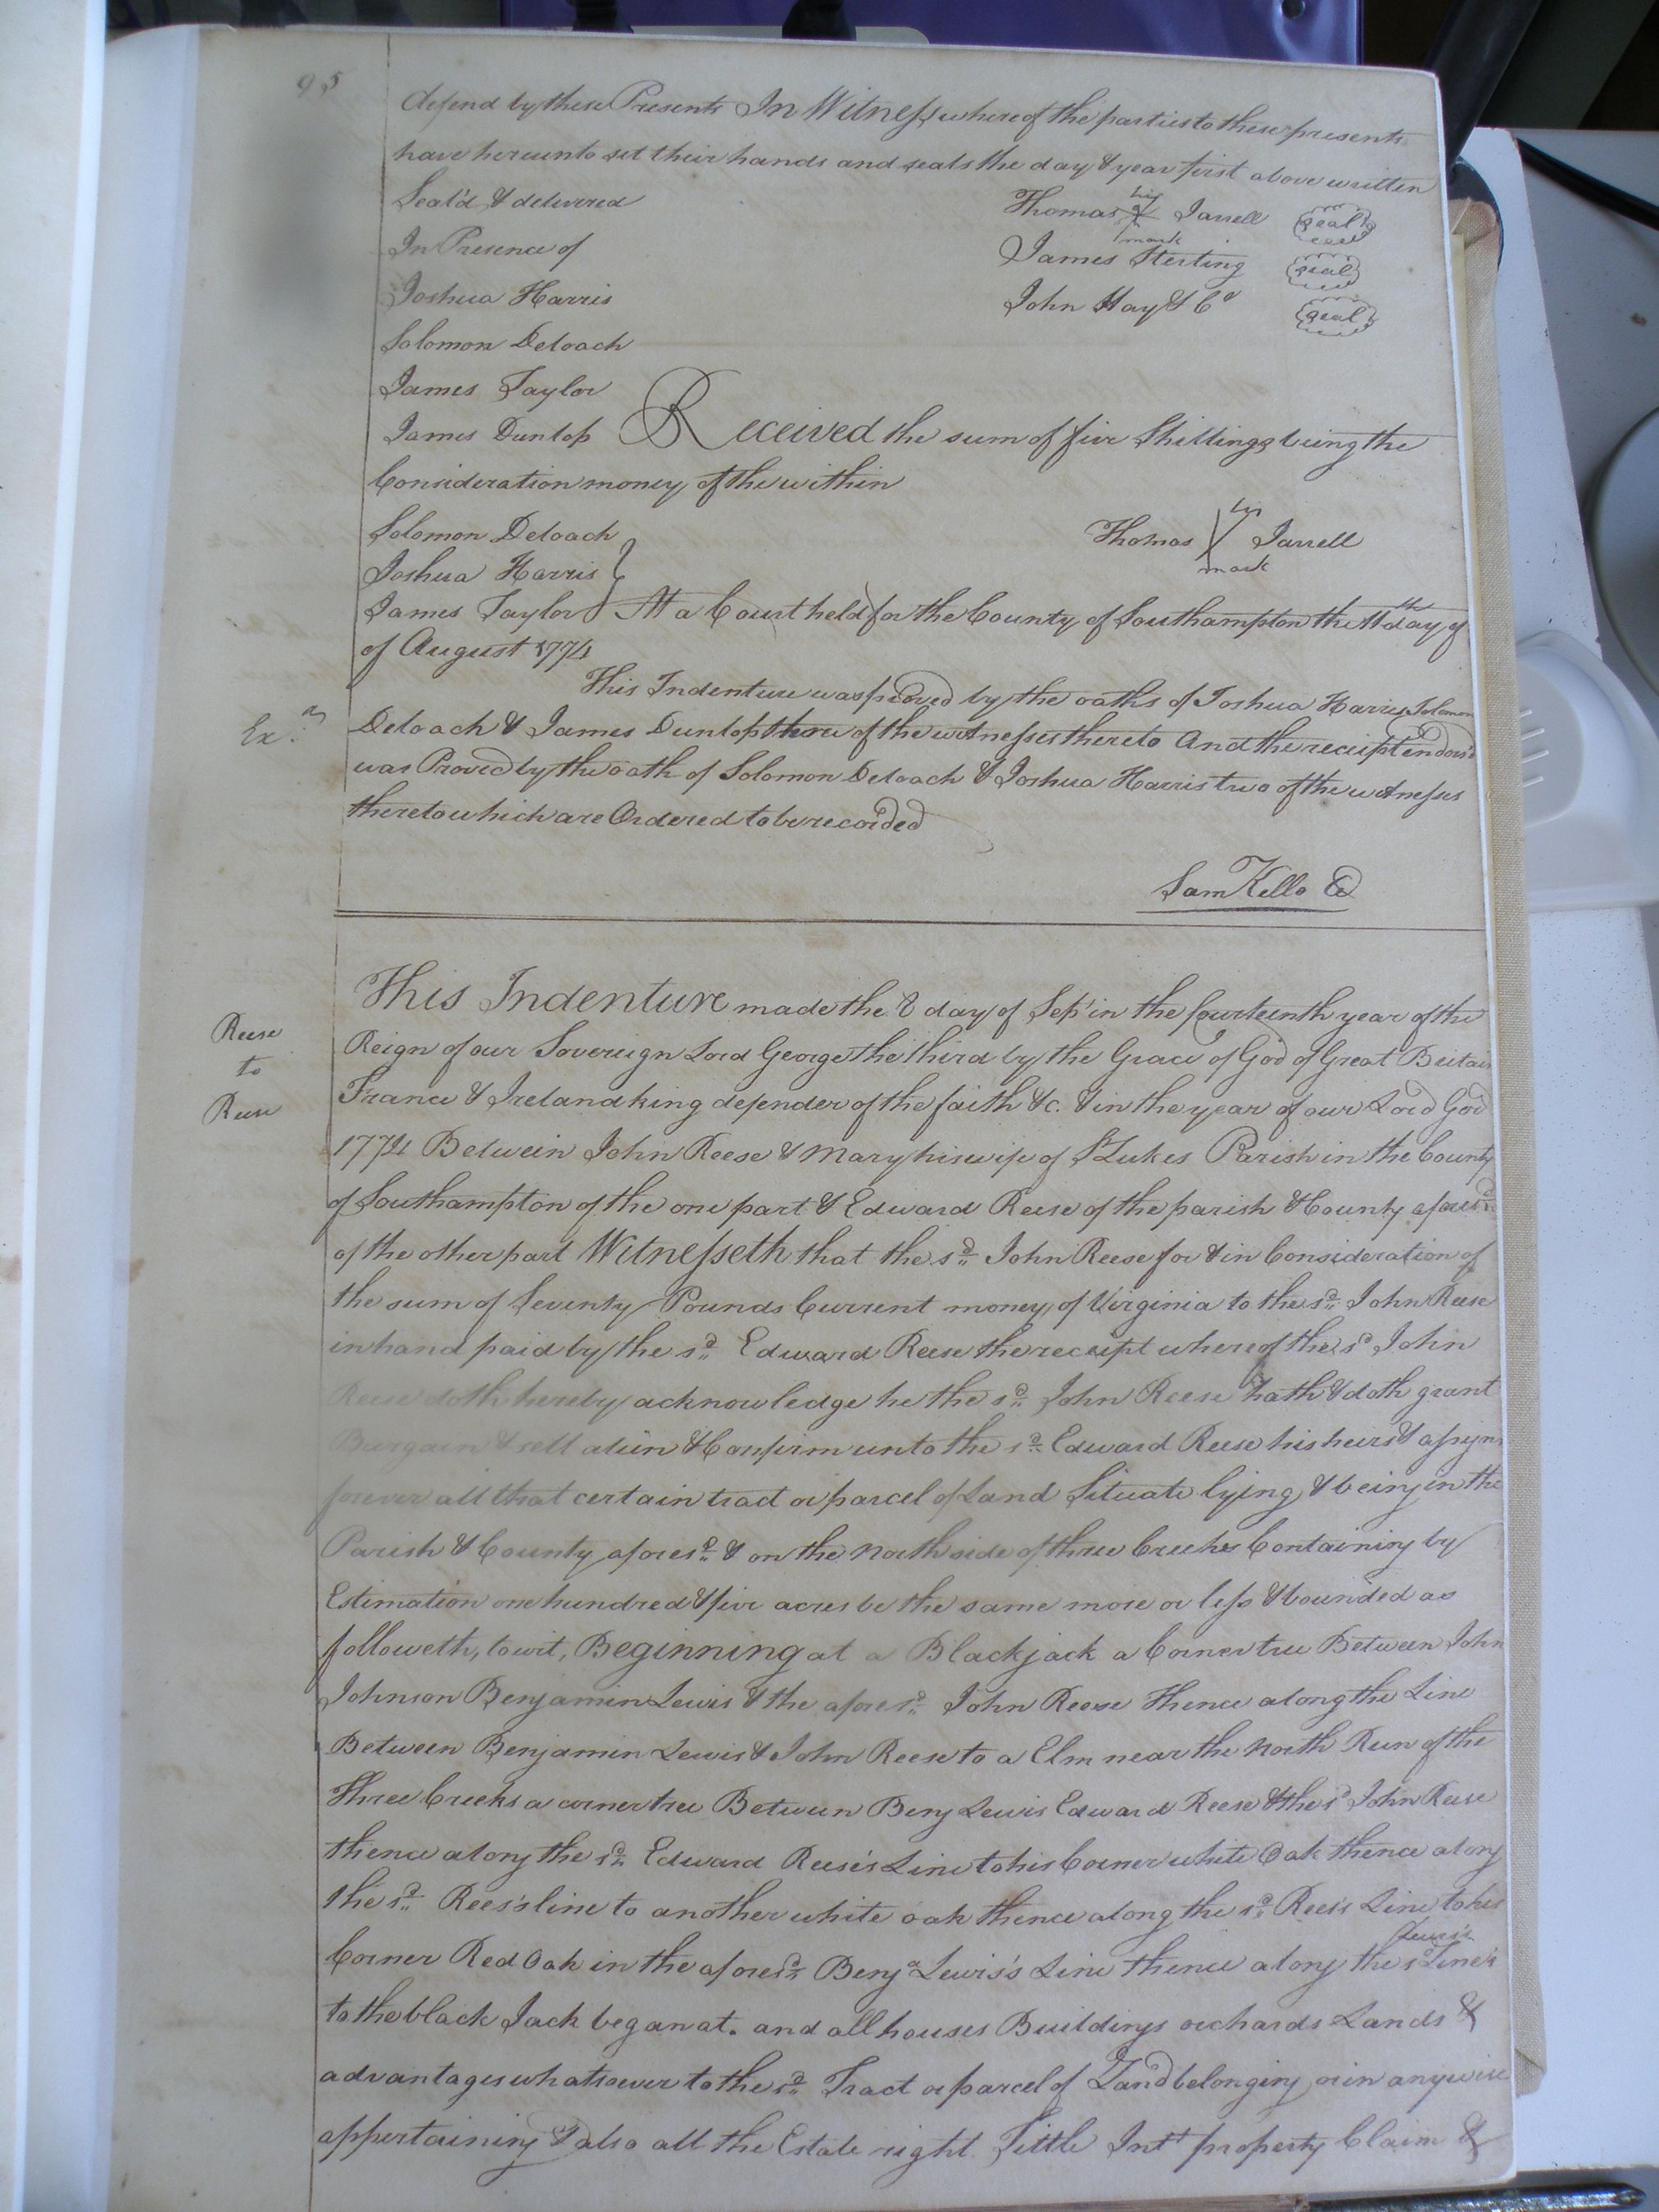 95
defend by these Presents In Witness whereof the parties to these presents
have hereunto set their hands and seals the day & year first above written
Seal'd & delivered Thomas his mark Jarrell seal
In Presence of James Sterling seal
Joshua Harris John Hay & Co seal
Solomon Deloach
James Taylor
James Dunlop Received the sum of five Shillings being the
Consideration money of the within
Solomon Deloach Thomas his mark Jarrell
Joshua Harris
James Taylor At a Court held for the County of Southampton the 11th day of
of August 1774
This Indenture was proved by the oaths of Joshua Harris, Solomon
Exd Deloach & James Dunlop three of the witnesses thereto And the receipt endors'd
was Proved by the oath of Solomon Deloach & Joshua Harris two of the witnesses
thereto which are Ordered to be recorded
Sam Kello
This Indenture made the 8 day of Sept in the fourteenth year of the
Reese
to
Reese
Reign of our Sovereign Lord George the third by the Grace of God of Great Britain
France & Ireland king defender of the faith &c. & in the year of our Lord God
1774 Between John Reese & Mary his wife of St Lukes Parish in the County
of Southampton of the one part & Edward Reese of the parish & County aforesd
of the other part Witnesseth that the sd John Reese for & in Consideration of
the sum of Seventy Pounds Current money of Virginia to the sd John Reese
in hand paid by the sd Edward Reese the receipt whereof the sd John
Reese doth hereby acknowledge he the sd John Reese hath & doth grant
Bargain & sell alien & Confirm unto the sd Edward Reese his heirs & assigns
forever all that certain tract or parcel of Land Situate lying & being in the
Parish & County aforesd & on the North side of three Creeks Containing by
Estimation one hundred & five acres be the same more or less & bounded as
followeth, towit, Beginning at a Blackjack a Corner tree Between John
Johnson Benjamin Lewis & the aforesd John Reese Thence along the Line
Between Benjamin Lewis & John Reese to a Elm near the North Run of the
Three Creeks a corner tree Between Benj Lewis Edward Reese & the sd John Reese
thence along the sd Edward Reese's Line to his Corner white Oak thence along
the sd Rees's line to another white oak thence along the sd Rees's Line to his
Corner Red Oak in the aforesd Benja Lewis's Line thence along the sd Lewis's Line
to the black Jack began at. and all houses Buildings orchards Lands &
advantages whatsoever to the sd Tract or parcel of Land belonging or in anywise
appertaining & also all the Estate right Tittle Intt property Claim &